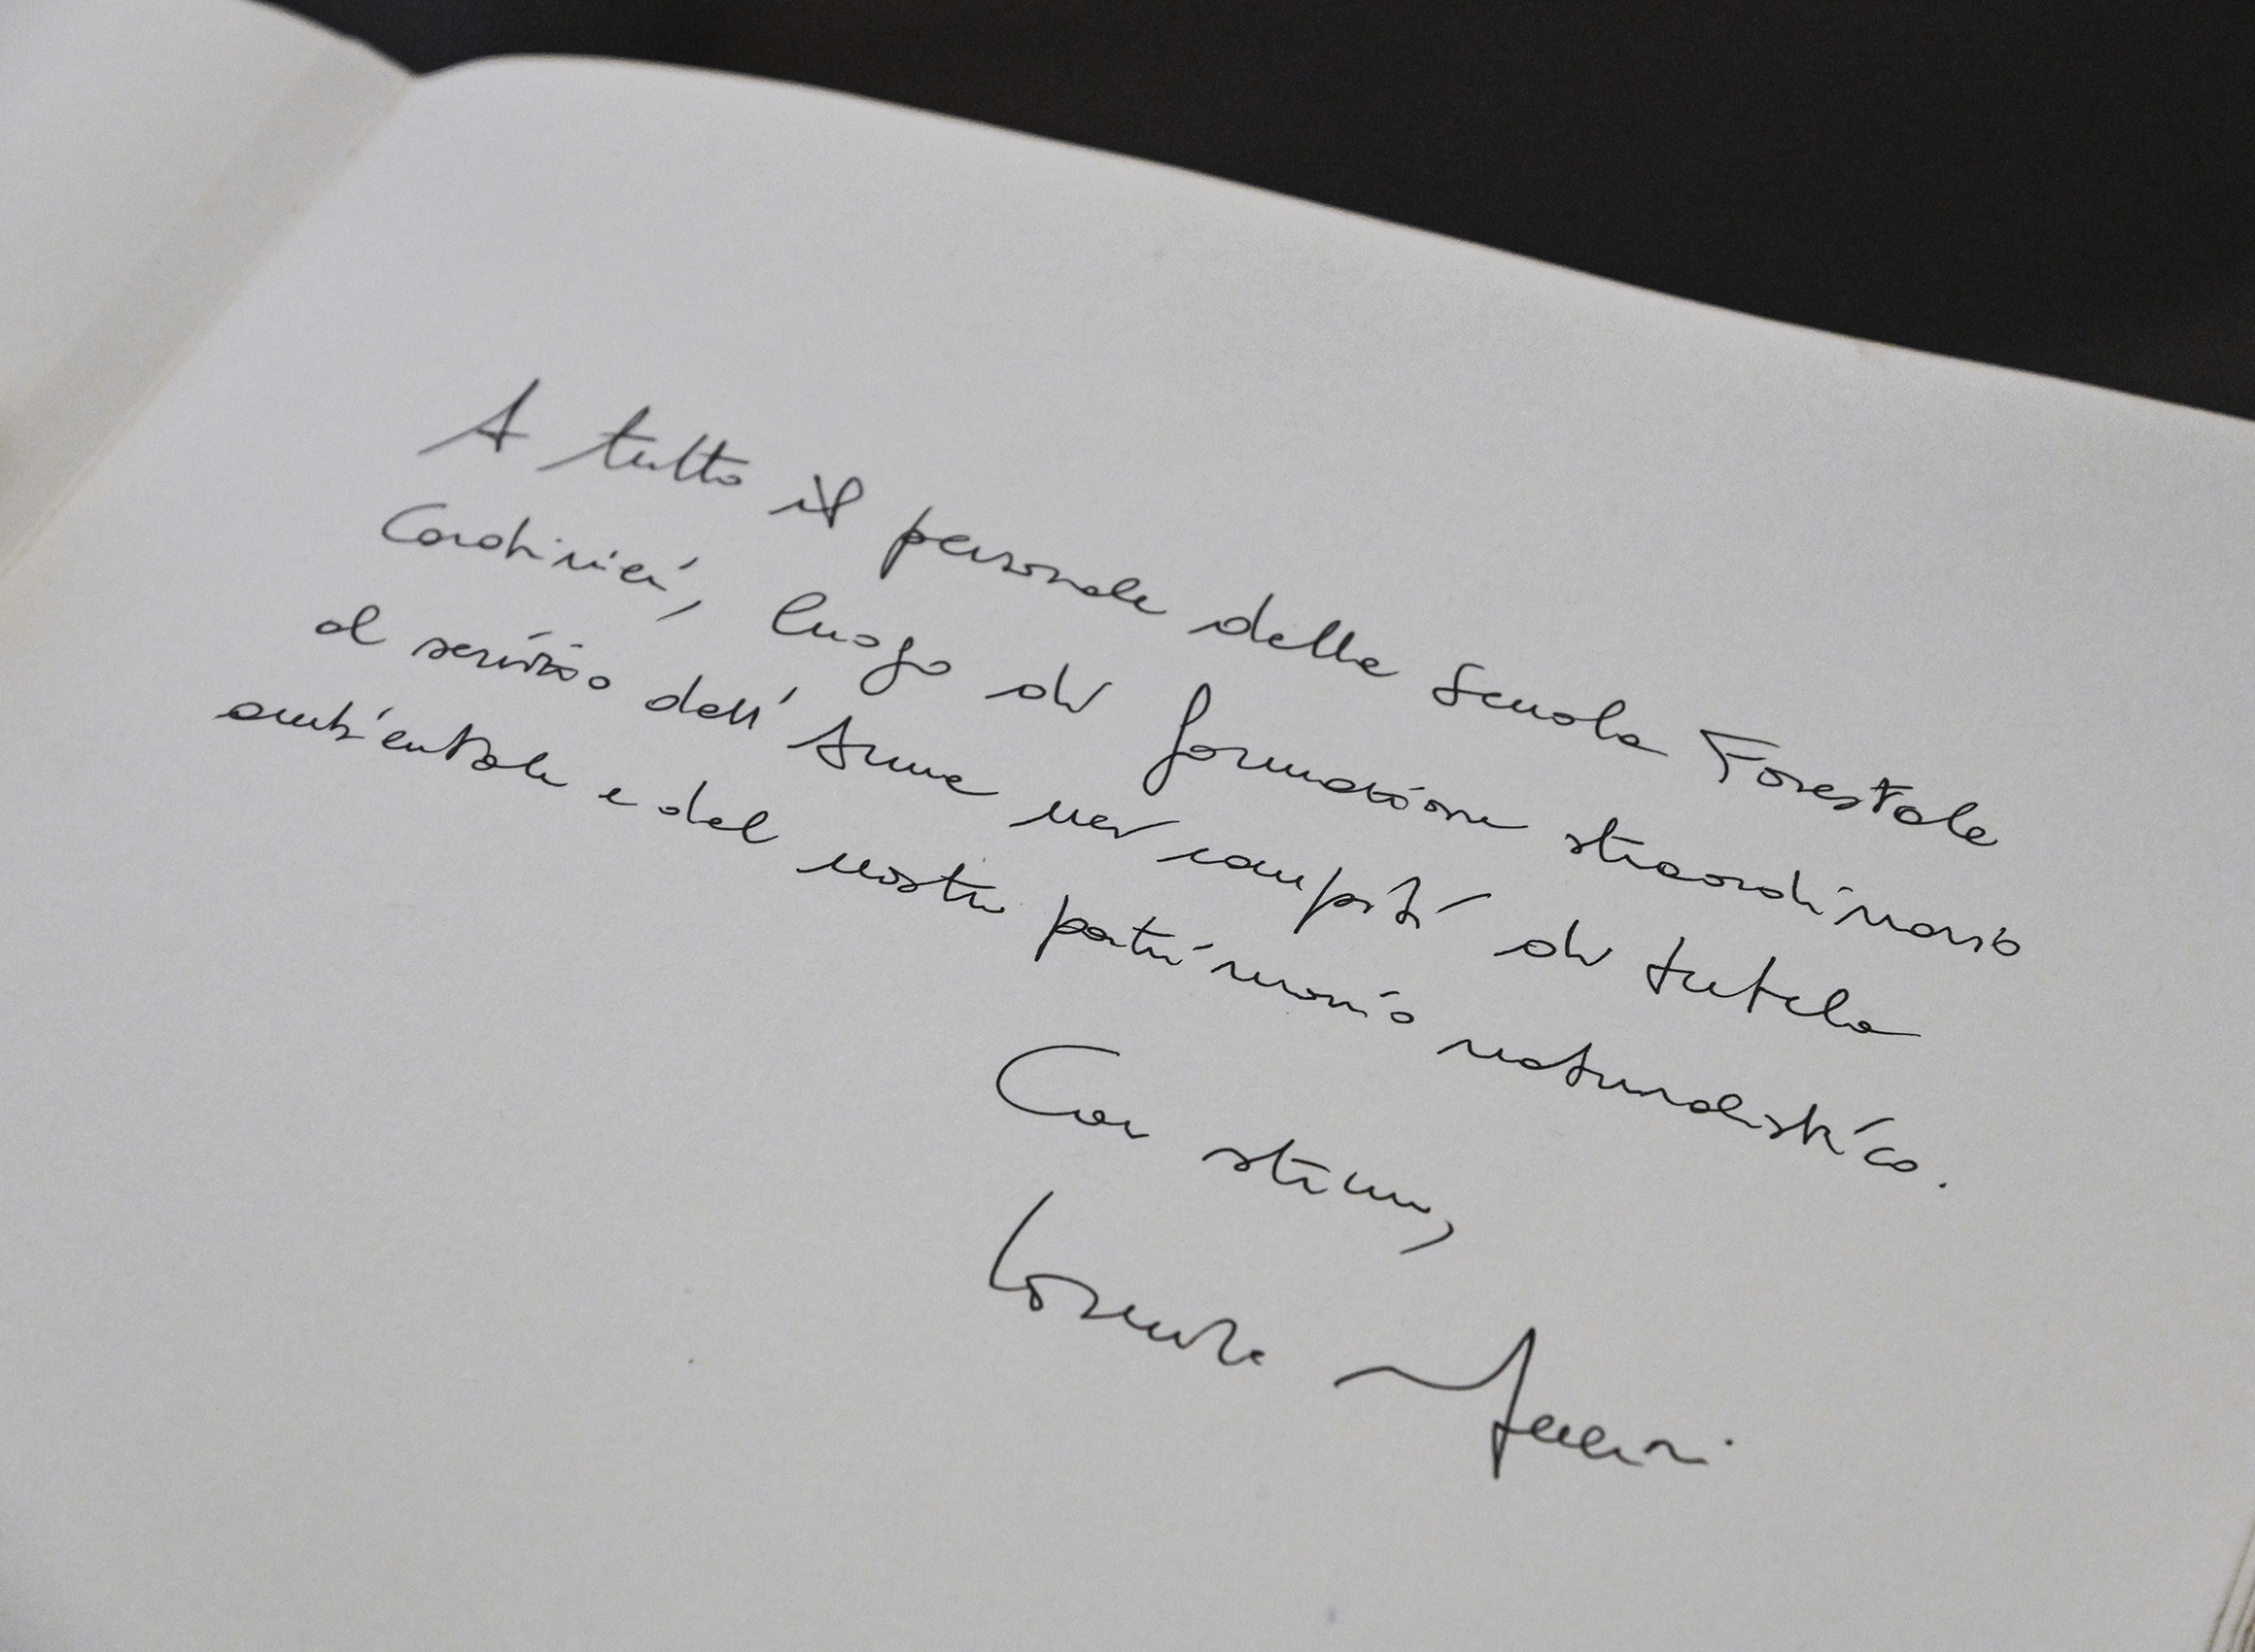 A tutto il personale della Scuola Forestale
Carabinieri, luogo di formazione straordinario
al servizio dell'Arma nei compiti di tutela
ambientale e del nostro patrimonio naturalistico.
Con stima,